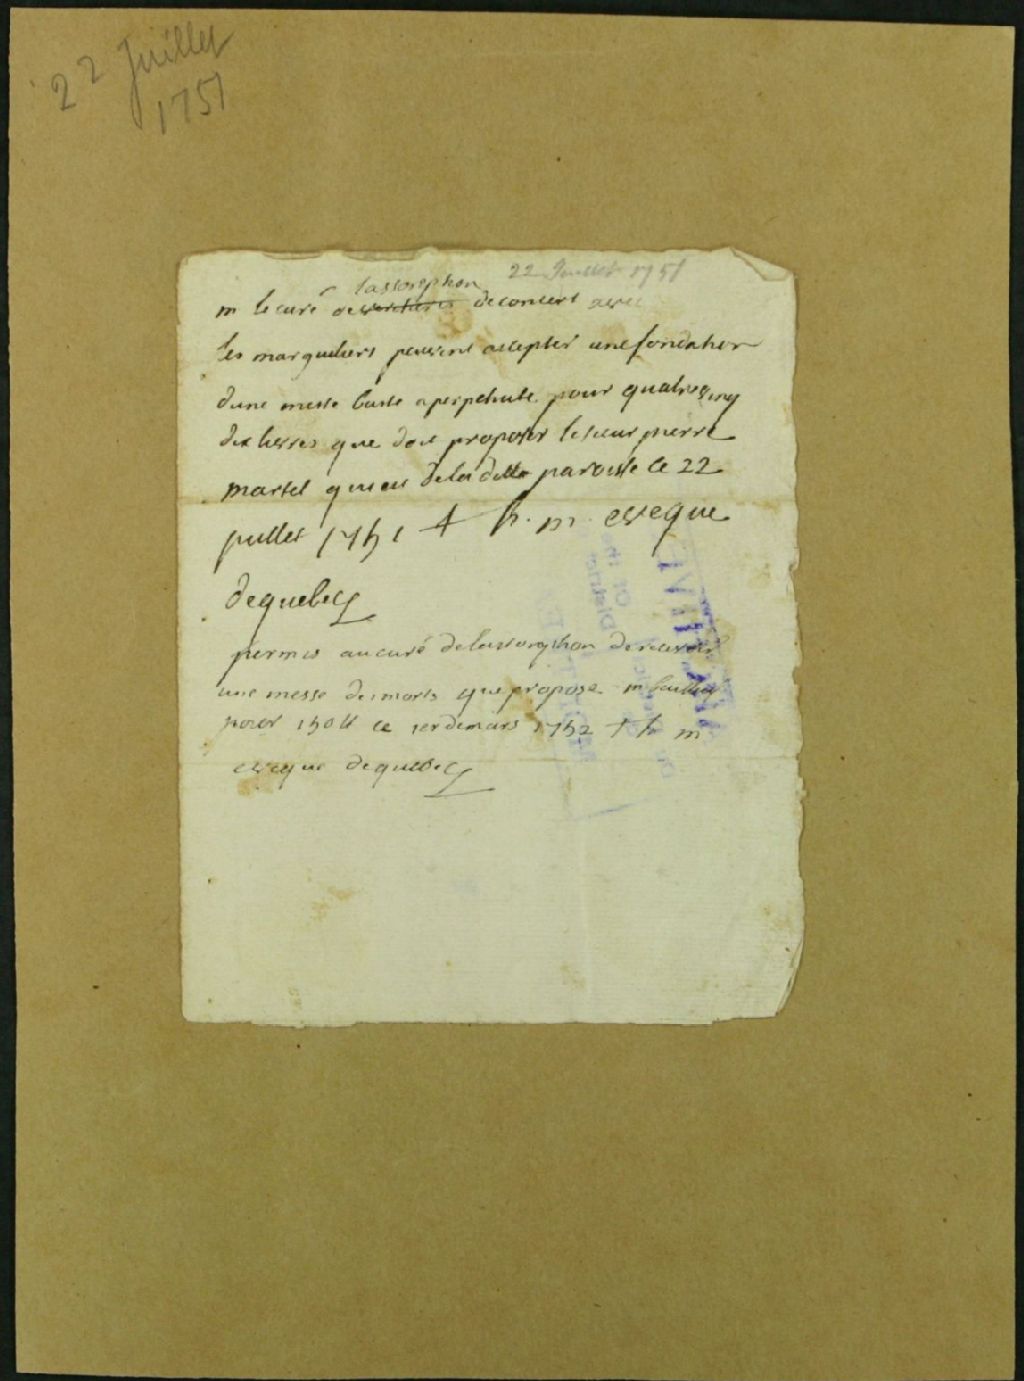 22 Juillet
1751
22 Juillet 1751
lassomption
m le curé de deconcert avec
les marguiliers peuvent accepter une fondation
dune messe basse a perpetuite pour quatre
dix livres que doit proposer le sieur pierre
martel de la ditte paroisse le 22
juillet 1751 + h. m. eveque
de quebec
permis au curé de lassomption de recevoir
une messe des morts que propose m
pour 150 ce 1er de mars 1752 + h m
eveque de quebec